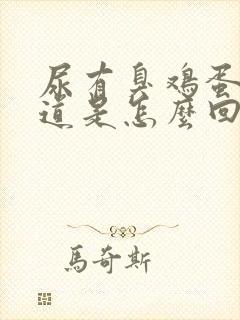 尿有臭鸡蛋
道是怎麼回
馬奇斯